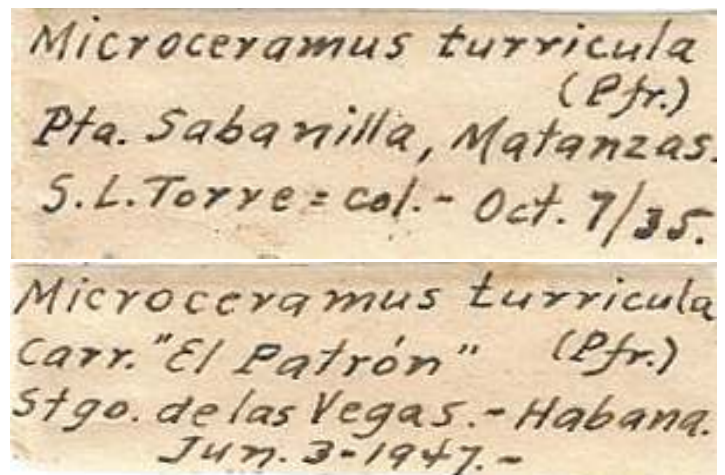 Microceramus turricula
(Pfr.)
Pta. Sabanilla, Matanzas.
S.L. Torre = col. - Oct. 7/35.
Microceramus turricula
Carr. "El Patrón" (Pfr.)
Stgo. de las Vegas. - Habana.
Jun. 3-1947. -